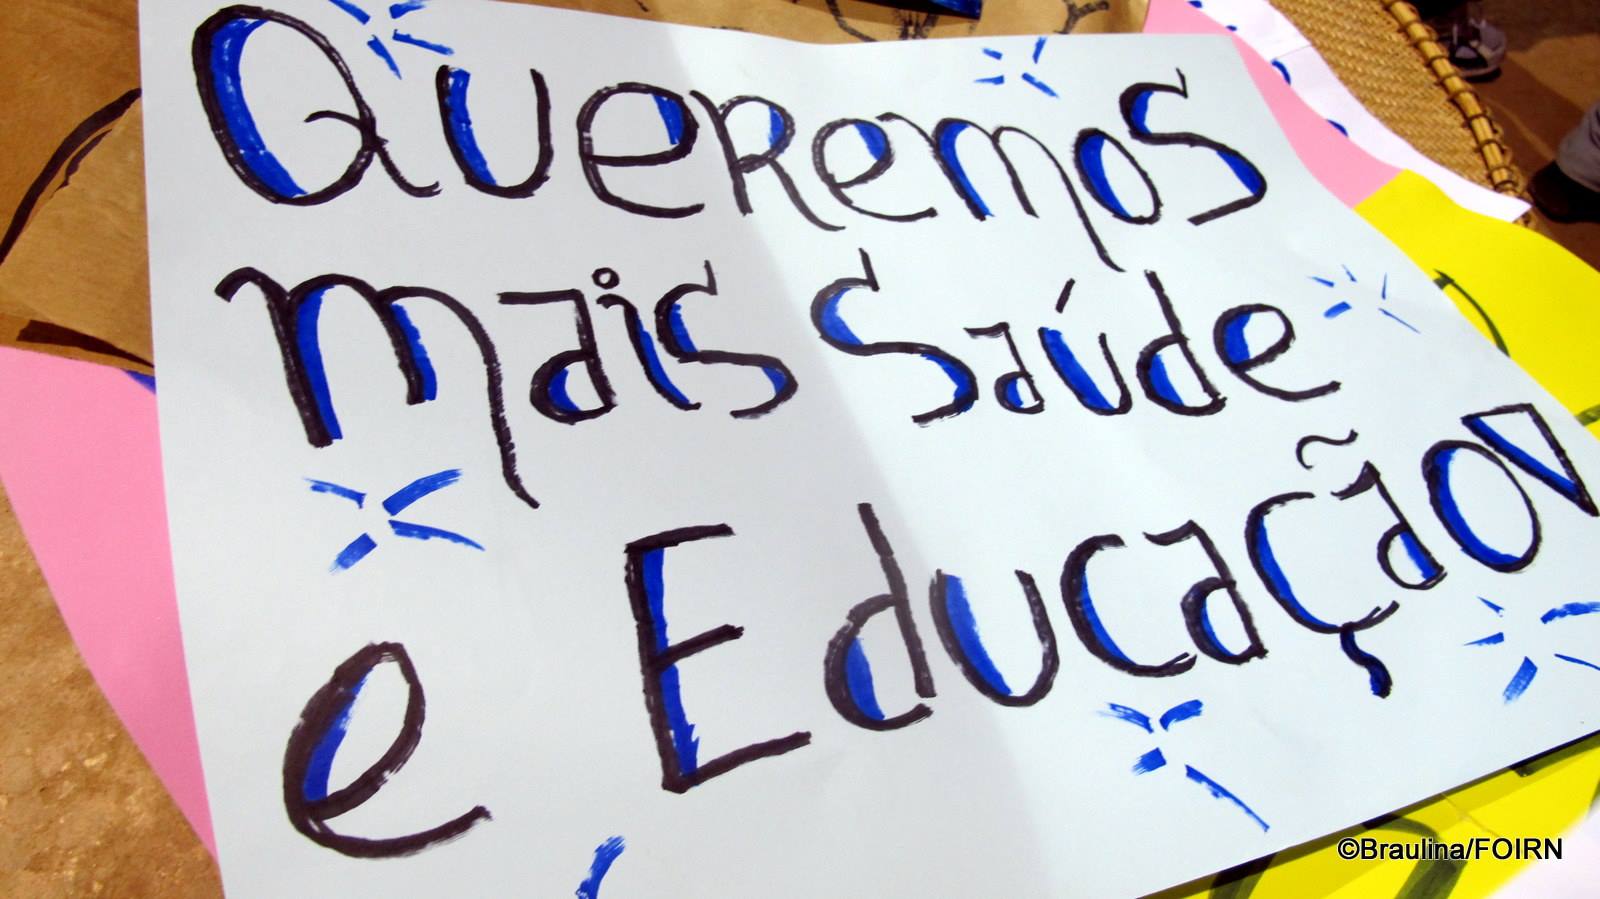 Queremos
mais Saúde
e Educação
©Braulina/FOIRN